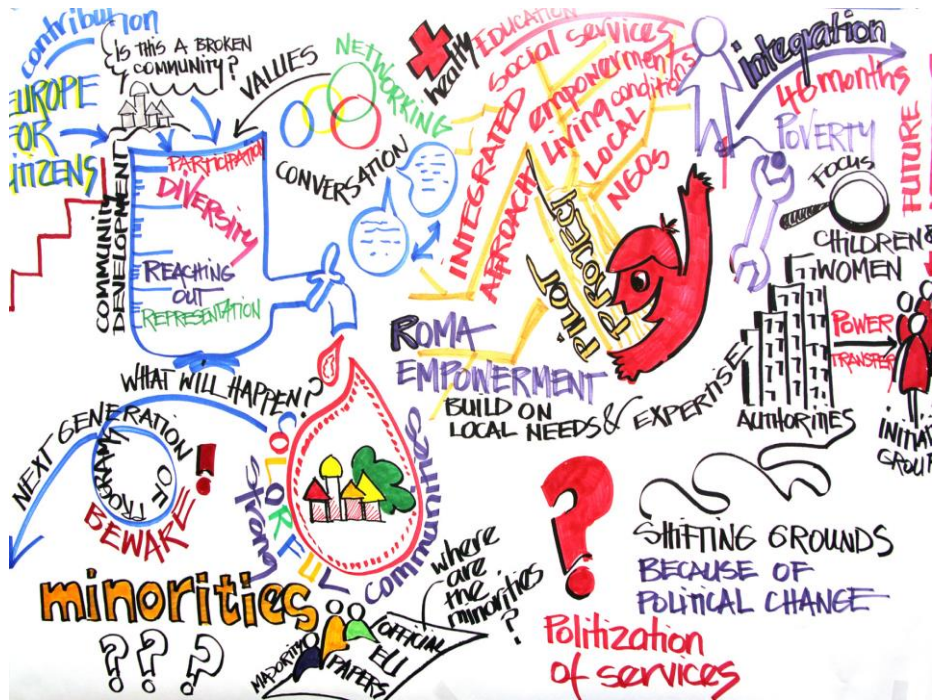 contribution
IS THIS A BROKEN
COMMUNITY?
EUROPE
FOR
CITIZENS
VALUES
NETWORKING
COMMUNITY
DEVELOPMENT
PARTICIPATION
DIVERSITY
REACHING
OUT
REPRESENTATION
CONVERSATION
healthy
EDUCATION
Social services
empowerment
living conditions
LOCAL
NGOs
INTEGRATED
APPROACH
PILOT
PROJECT
integration
46 months
POVERTY
FOCUS
FUTURE
CHILDREN &
WOMEN
ROMA
EMPOWERMENT
BUILD ON
LOCAL NEEDS & EXPERTISE
AUTHORITIES
POWER
TRANSFER
GROUP
WHAT WILL HAPPEN?
NEXT GENERATION
OF PROGRAMM
BEWARE!
COLORFUL
strong
communities
minorities
? ? ?
MAJORITY
OFFICIAL
EU
PAPERS
where
are
the
minorities
?
?
Politization
of services
SHIFTING GROUNDS
BECAUSE OF
POLITICAL CHANGE